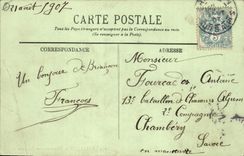 21 août 1907
CARTE POSTALE
Tous les pays étrangers n'acceptent pas la Correspondance au recto
(Se renseigner à la Poste)
CORRESPONDANCE
ADRESSE
Un bonjour de
François
Monsieur
Antoine
13e bataillon de Chasseurs Alpins
7e Compagnie
Chambéry
Savoie
en manœuvres